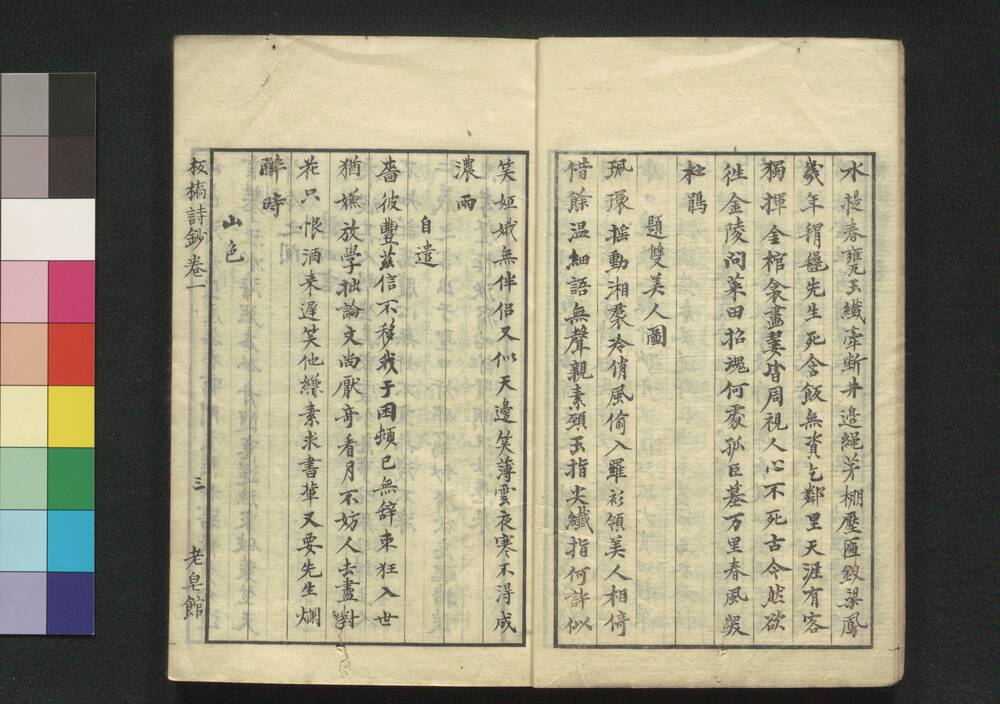 水裎春甕玉纖牽斷井邊繩茅棚壓匾釵梁鳳
幾年稱㜸先生死含飯無資乞鄰里天涯有客
獨揮金棺衾畫翣皆周視人心不死古今然欲
徃金陵问菜田招魂何處孤臣墓万里春風哭
杜鵑
題雙美人圖
珮環摇動湘裙冷俏風偷入羅衫領美人相倚
借餘温細語無聲親素頸玉指尖纖指何許似
笑姮娥無伴侣又似天邊笑薄雲夜寒不淂成
濃雨
自遣
嗇彼豐兹信不移我于困頓已無辞束狂入世
猶嫌放學拙論文尚厭奇看月不妨人去盡對
花只恨酒来遲笑他縑素求書軰又要先生爛
醉時
山色
板橋詩鈔卷一
三
老皂館